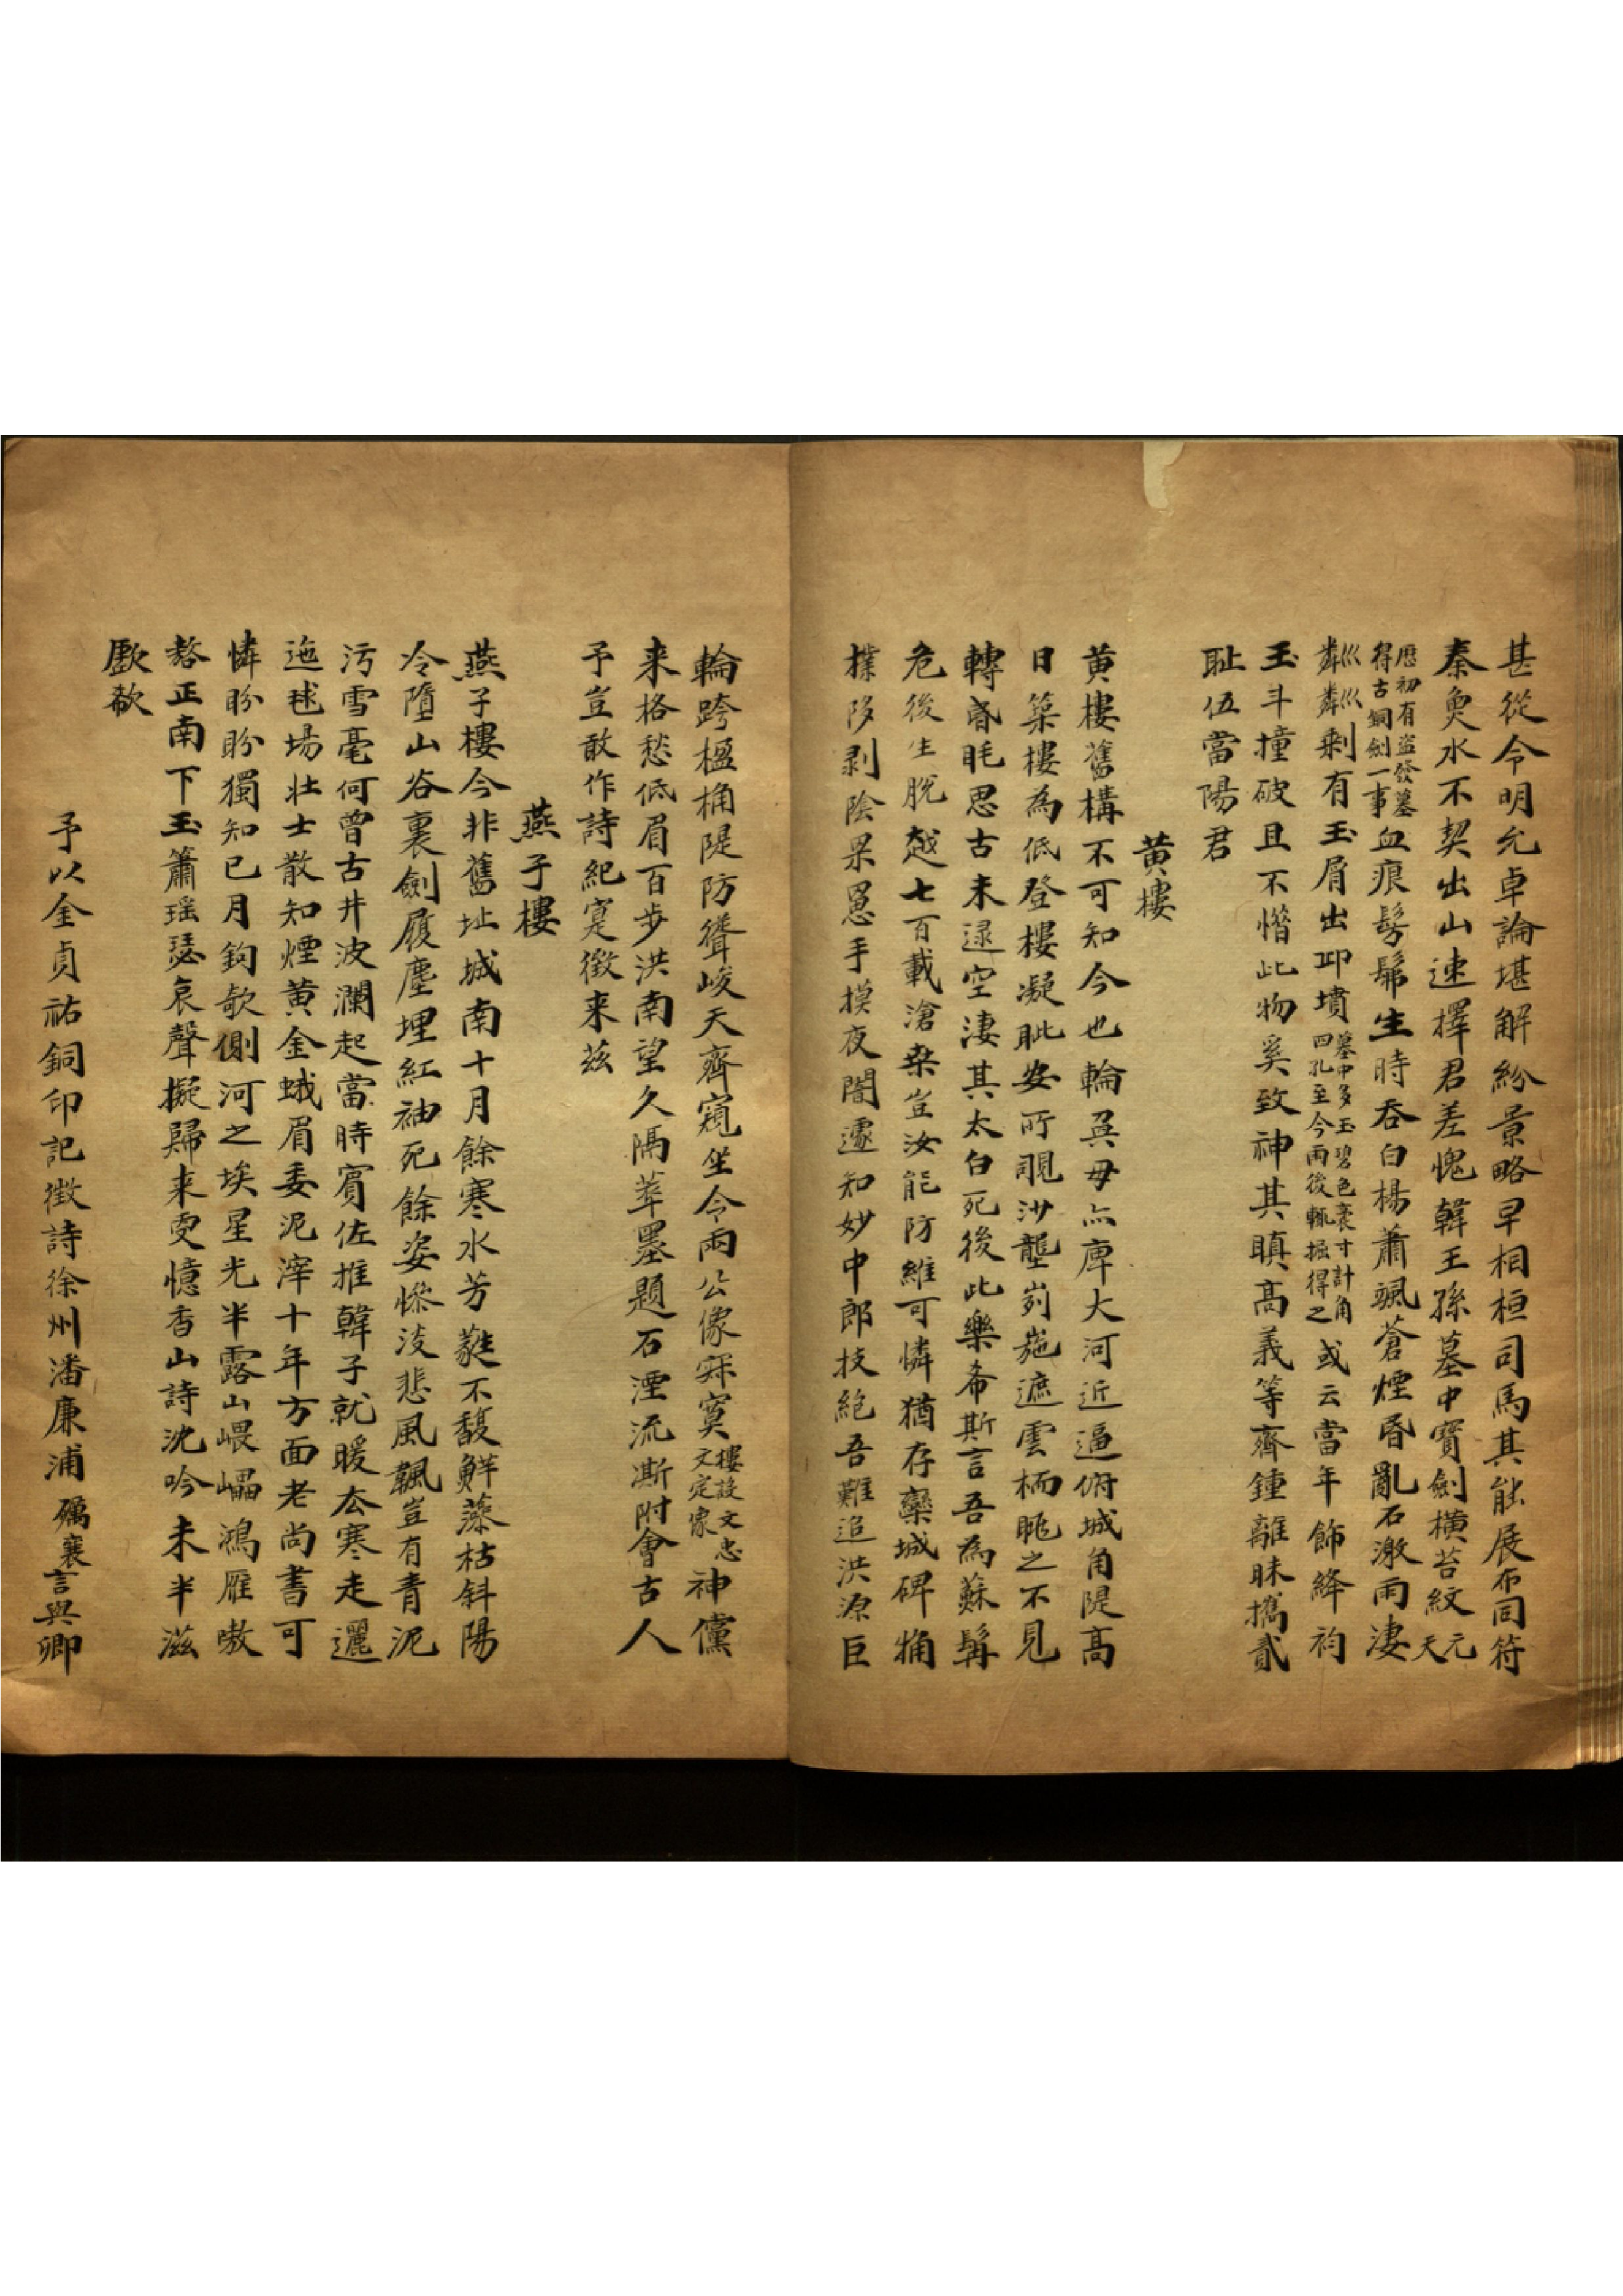 甚從今明允卓論堪解紛景略早相桓司馬其能展布同符
秦臾水不契出山速擇君差愧韓王孫墓中寶劍橫苔紋天元
厯初有盜發墓得古銅劍一事血痕髣髴生時吞白楊蕭颯蒼煙昏亂石激雨淒
巛巛粼粼剩有玉屑出卭墳墓中多玉碧色袤寸計角四孔至今雨後輒掘得之或云當年飾絳袀
玉斗撞破且不惜此物奚致神其瞋高義等齊鍾離昧擕貳
耻伍當陽君
黄樓
黄樓舊構不可知今也輪奐毋亦庳大河近逼俯城角隄高
日築樓為低登樓凝眦安所覗沙壟峛崺遮雲栭眺之不見
轉昏眊思古未逯空淒其太白死後此樂希斯言吾為蘇髯
危後生脫越七百載滄桑豈汝能防維可憐猶存欒城碑桷
撲陊剥陰罘罳手摸夜闇遽知妙中郎技絕吾難追洪源巨
輪跨楹桷隄防聳峻天齊窺坐令兩公像寂寞樓設文忠文定像神儻
来格愁低眉百步洪南望久隔萃墨題石湮流澌附會古人
予豈敢作詩紀寔徵来茲
燕子樓
燕子樓今非舊址城南十月餘寒水芳蕤不馥鮮藻枯斜陽
冷墮山谷裏劍履塵埋紅袖死餘姿慘淡悲風颿豈有青泥
污雪毫何曾古井波瀾起當時賓佐推韓子就暖厺寒走邐
迤毬場壯士散知煙黄金蛾眉委泥滓十年方面老尚書可
憐盼盼獨知已月鉤欹側河之埃星光半露山㟪嵓鴻雁嗷
嗸正南下玉簫瑶瑟哀聲擬歸来更憶香山詩沈吟未半滋
歔欷
予以金貞祐銅印記徵詩徐州潘廉浦礪襄言與卿